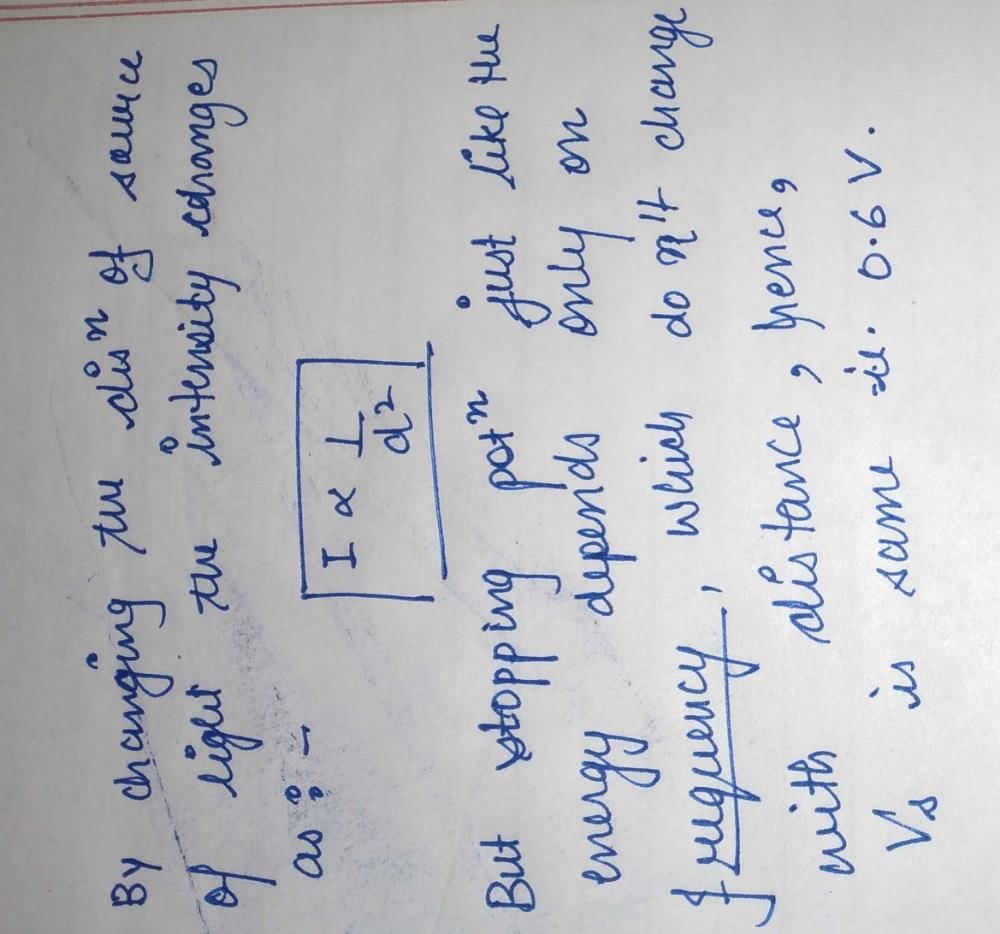 By changing the disⁿ of source
of light the intensity changes
as :-
I ∝ 1/d²
But stopping potⁿ just like the
energy depends only on
frequency, which don't change
with distance, hence,
Vs is same i.e. 0.6 V.